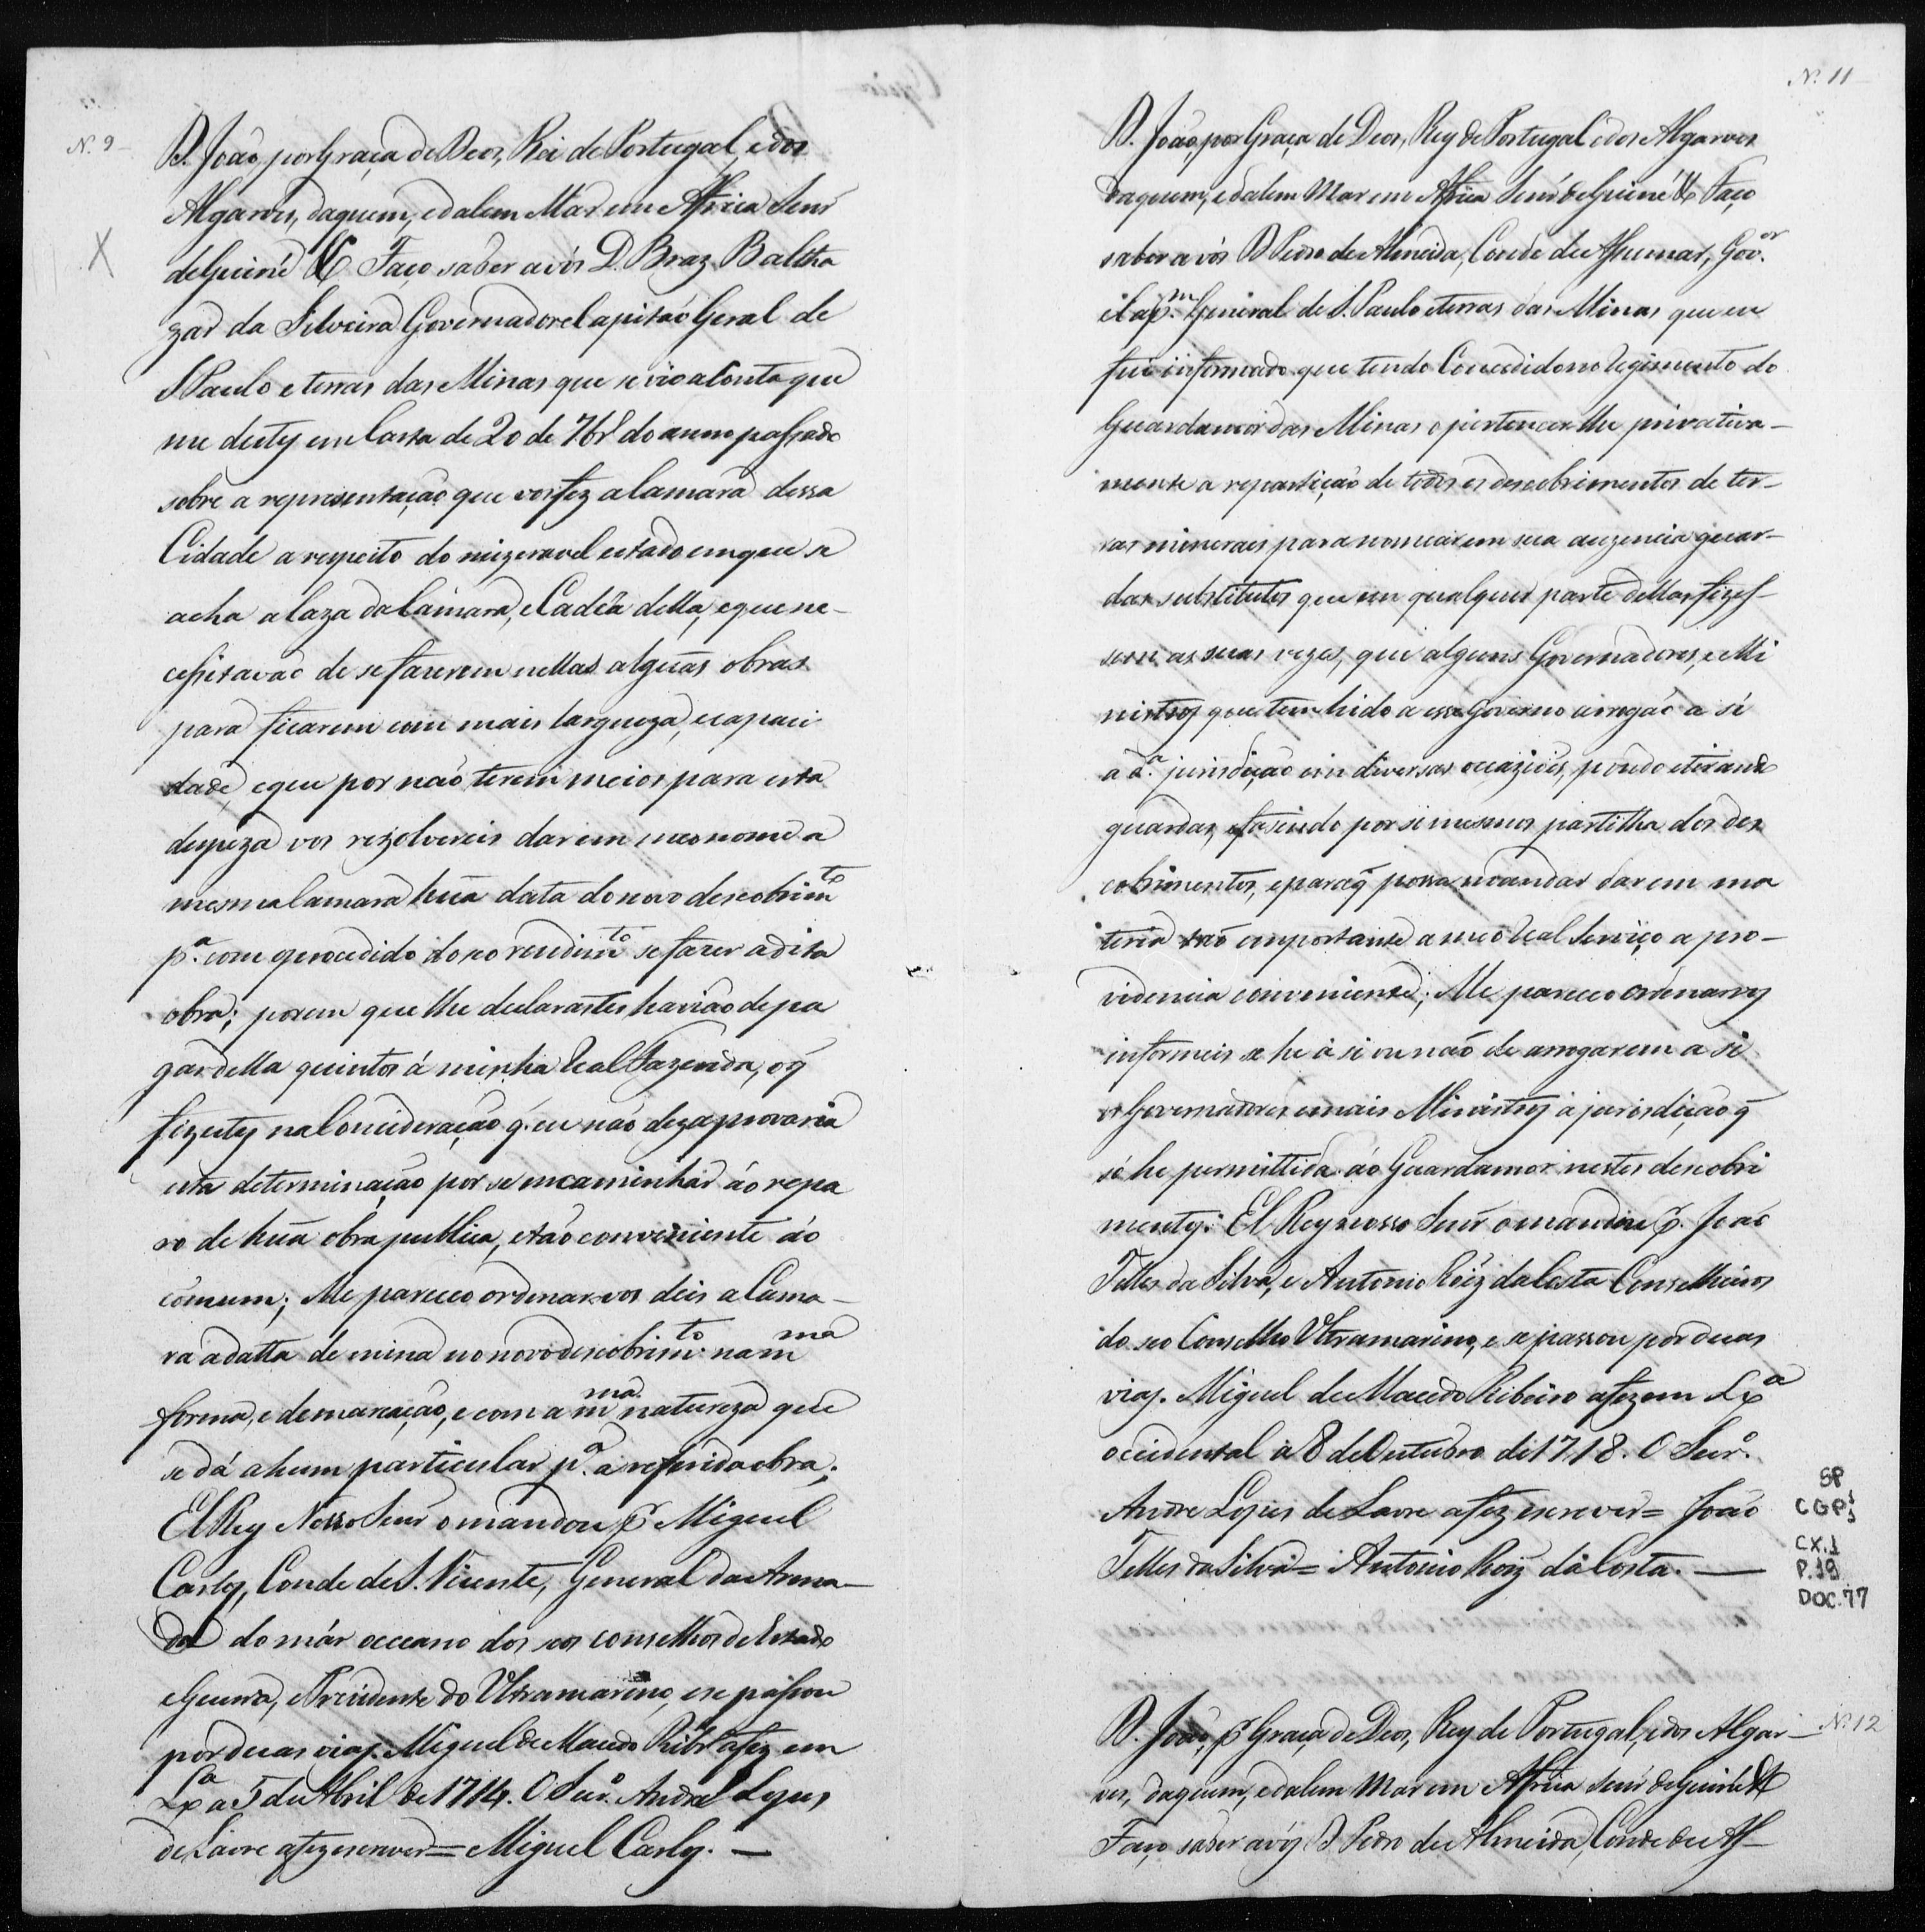 N. 9
D. João por Graça de Deos, Rei de Portugal, e dos
Algarves, daquem, e dalem Mar em Africa Senr
de Guiné &C Faço saber a vós D. Braz Baltha
zar da Silveira Governador e Capitaõ Geral de
S Paulo e terras das Minas que se vio a Conta que
me destes em Carta de 20 de 7br.º do anno passado
sobre a representação que vos fez a Camara dessa
Cidade a respeito do mizeravel estado em que se
acha a Caza da Camara, e Cadêa della, e que ne-
cessitavaõ de se fazerem nellas algũas obras
para ficarem com mais largueza, e capaci
dade, e que por naõ terem meios para esta
despeza vos rezolvereis dar em meo nome a
mesma Camara hũa data do novo descobrimto
pa. com o procedido do seo rendimto se fazer a dita
obra; porem que lhe declarastes haviaõ de pa
gar della quintos á minha Real Fazenda, o q̃
fizestes na Consideração q̃ eu naõ dezaprovaria
esta determinação por se encaminhar áo repa
ro de hũa obra publica, e taõ conveniente áo
cómum; Me pareceo ordenar-vos deis a Cama-
ra a datta de mina no novo descobrimto na mma
forma, e demarcação, e com a mma natureza que
se dá a hum particular pa. a referida obra;
El Rey Nosso Senr o mandou pr Miguel
Carlos, Conde de S. Vicente, General da Arma-
da do már occeano dos seos conselhos de Estado
e Guerra, e Prezidente do Ultramarino, e se passou
por duas vias. Miguel de Macedo Ribr.º a fez em
Lxa a 5 de Abril de 1714. O Secr.º Andre Lopes
de Lavre a fez escrever = Miguel Carlos. —
N. 11
D. João, por Graça de Deos, Rey de Portugal e dos Algarves
daquem, e dalem Mar em Africa Senr de Guiné &C Faço
saber a vós D Pedro de Almeida, Conde de Assumar, Gov.or
e Cap.m General de S. Paulo e terras das Minas que eu
fui informado que tendo Concedido no regimento do
Guardamor das Minas o pertencer lhe privativa-
mente a repartição de todos os descobrimentos de ter-
ras minerais para nomear em sua auzencia guar-
das substitutos que em qualquer parte dellas fizes-
sem as suas vezes, que alguns Governadores, e Mi
nistros que tem hido a esse Governo arrogaõ a sí
a d.a jurisdição em diversas occaziões, pondo e tirando
guardas, e fasendo por si mesmos partilha dos des
cobrimentos, e para q̃ possa mandar dar em ma
teria taõ importante a meo Real Serviço a pro-
videncia conveniente; Me pareceo ordenarvos
informeis se he á si ou naõ de arrogarem a si
os Governadores e mais Ministros a jurisdição q̃
só he permittida áo Guardamor nestes descobri
mentos: El Rey nosso Senr o mandou pr. Joaõ
Telles da Silva, e Antonio Roiz da Costa Conselheiros
do seo Conselho Ultramarino, e se passou por duas
vias. Miguel de Macedo Ribeiro a fez em Lxa
occidental á 8 de Outubro de 1718. O Secr.º
Andre Lopes de Lavre a fez escrever = João
Telles da Silva = Antonio Roiz da Costa. —
SP
CGP
CX.1
P.19
DOC.77
N. 12
D. João, pr Graça de Deos, Rey de Portugal, e dos Algar-
ves, daquem, e dalem Mar em Africa Senr de Guiné &C
Faço saber a vós D Pedro de Almeida, Conde de As-